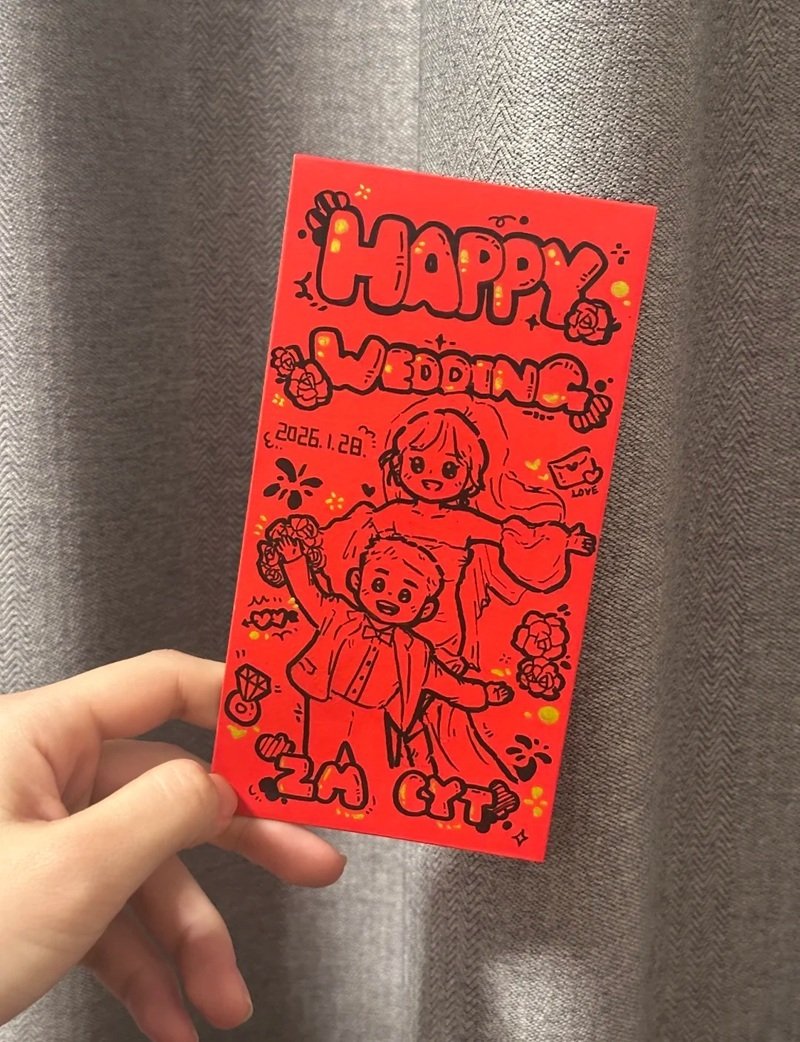 HAPPY
WEDDING
2026.1.28.
LOVE
ZM CYT